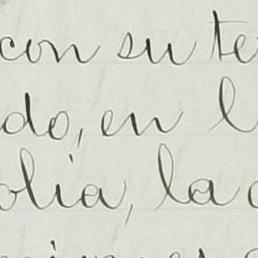 con su te
do, en l
olia, la